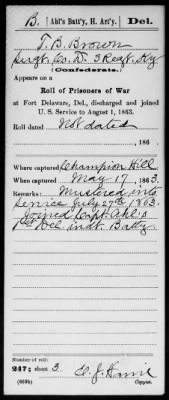 B. | Ahl's Batt'y, H. Art'y. | Del.
T. B. Brown
Sergt, Co. D. 3 Regt, Ky
(Confederate.)
Appears on a
Roll of Prisoners of War
at Fort Delaware, Del., discharged and joined
U. S. Service to August 1, 1863.
Roll dated
Not dated
, 186 .
Where captured Champion Hill
When captured May 17, 1863.
Remarks: Mustered into
Service July 27th 1863.
Joined Capt. Ahl's
1st Del. indt. Batty.
Number of roll:
247; sheet 3
(639b) Copyist.